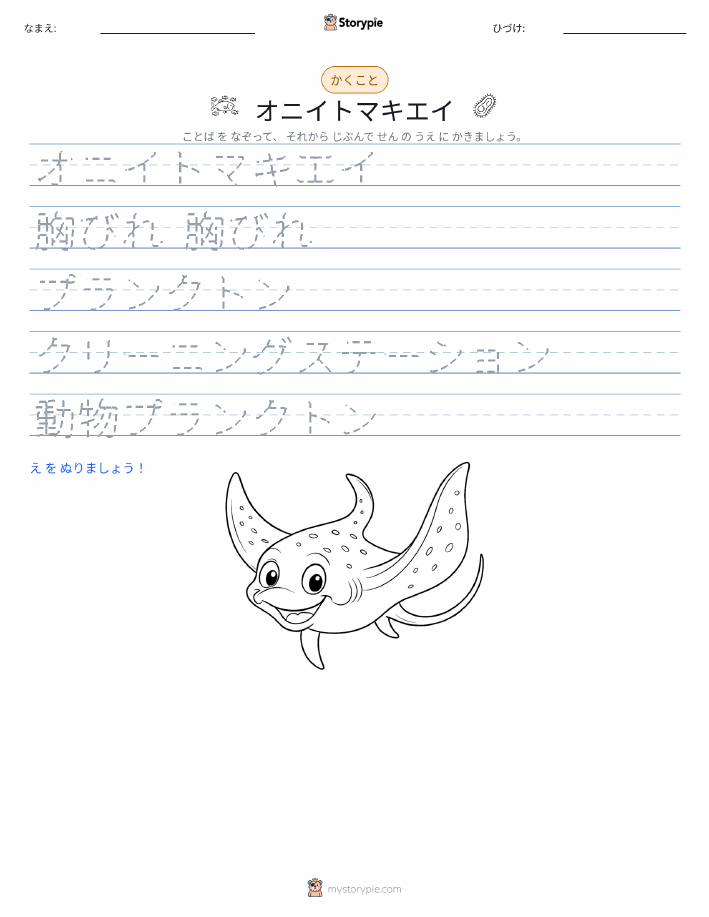 なまえ:
Storypie
ひづけ:
かくこと
オニイトマキエイ
ことば を なぞって、 それから じぶんで せん の うえ に かきましょう。
オニイトマキエイ
胸びれ 胸びれ
プランクトン
クリーニングステーション
動物プランクトン
え を ぬりましょう！
mystorypie.com